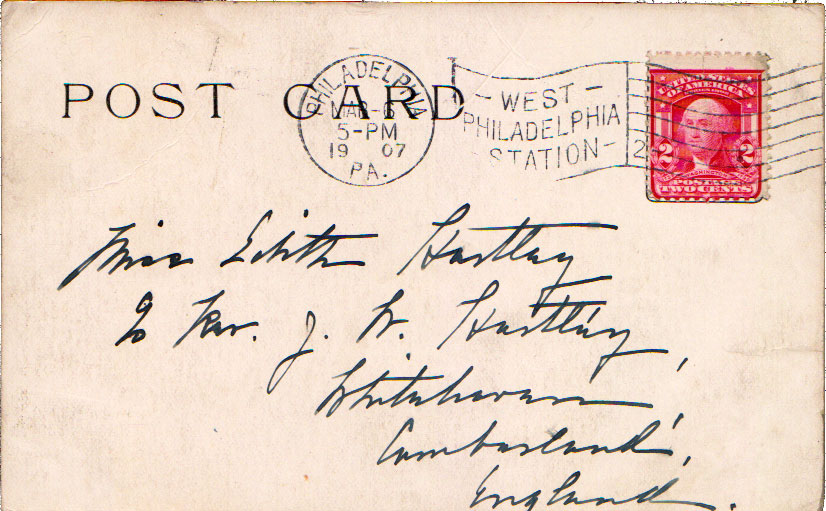 POST CARD
PHILADELPHIA
MAR-6
5-PM
19 07
PA.
- WEST -
PHILADELPHIA
STATION -
2
UNITED STATES
OF AMERICA
2 2
POSTAGE
TWO CENTS
Miss Edith Hartley
c/o Rev. J. W. Hartley,
Whitehaven,
Cumberland,
England.